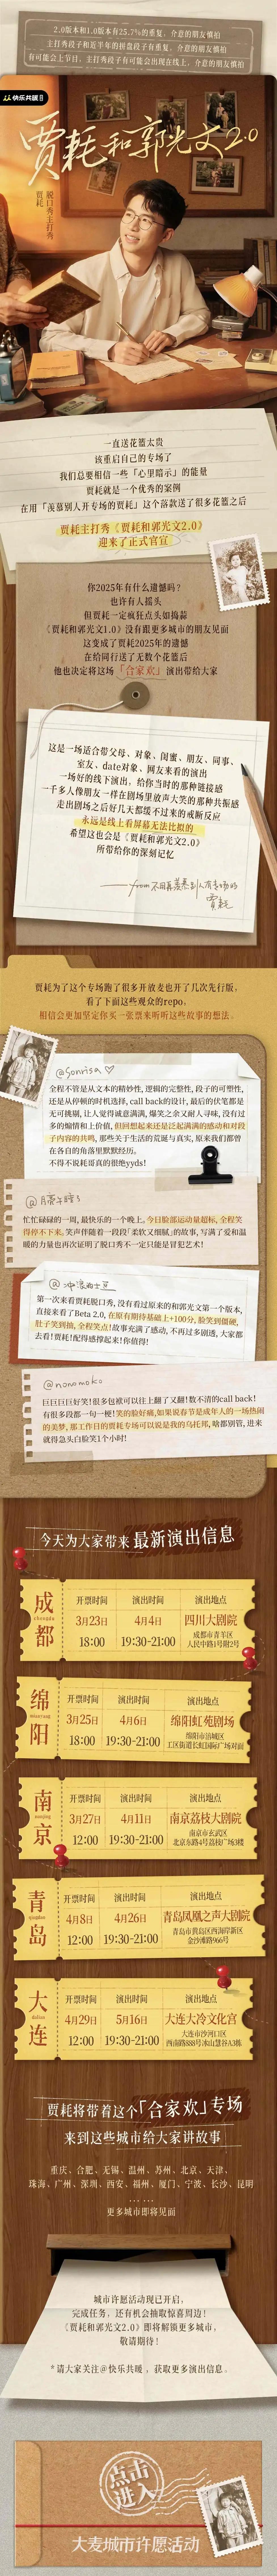 2.0版本和1.0版本有25.7%的重复，介意的朋友慎拍
主打秀段子和近半年的拼盘段子有重复，介意的朋友慎拍
有可能会上节目，主打秀段子有可能会出现在线上，介意的朋友慎拍
快乐共暖
贾耗和郭光文2.0
脱口秀主打秀
贾耗
一直送花篮太贵
该重启自己的专场了
我们总要相信一些「心里暗示」的能量
贾耗就是一个优秀的案例
在用「羡慕别人开专场的贾耗」这个落款送了很多花篮之后
贾耗主打秀《贾耗和郭光文2.0》
迎来了正式官宣
你2025年有什么遗憾吗？
也许有人摇头
但贾耗一定疯狂点头如捣蒜
《贾耗和郭光文1.0》没有跟更多城市的朋友见面
这变成了贾耗2025年的遗憾
在给同行送了无数个花篮后
他也决定将这场「合家欢」演出带给大家
这是一场适合带父母、对象、闺蜜、朋友、同事、
室友、date对象、网友来看的演出
一场好的线下演出，给你当时的那种链接感
一千多人像朋友一样在剧场里放声大笑的那种共振感
走出剧场之后好几天都缓不过来的戒断反应
永远是线上看屏幕无法比拟的
希望这也会是《贾耗和郭光文2.0》
所带给你的深刻记忆
——from 不用再羡慕别人有专场的
贾耗
贾耗为了这个专场跑了很多开放麦也开了几次先行版，
看了下面这些观众的repo，
相信会更加坚定你买一张票来听听这些故事的想法。
@Sonrisa♡
全程不管是从文本的精妙性，逻辑的完整性，段子的可塑性，
还是从停顿的时机选择，call back的设计，最后的伏笔都是
无可挑剔，让人觉得诚意满满，爆笑之余又耐人寻味，没有过
多的煽情和上价值，但回想起来还是泛起满满的感动和对段
子内容的共鸣，那些关于生活的荒诞与真实，原来我们都曾
在各自的角落里默默经历。
不得不说耗哥真的很绝yyds！
忙忙碌碌的一周，最快乐的一个晚上，今日脸部运动量超标，全程笑
得停不下来，笑声伴随着一段段「柔软又细腻」的故事，写满了爱和温
暖的力量也再次证明了脱口秀不一定只能是冒犯艺术！
第一次来看贾耗脱口秀，没有看过原来的和郭光文第一个版本，
直接来看了Beta 2.0，在原有期待基础上+100分，脸笑到僵硬，
肚子笑到抽，全程笑点！故事充满了感动，不再过多剧透，大家都
去看！贾耗！配得感撑起来！你值得！
@nonomoko
巨巨巨巨好笑！很多包袱可以往上翻了又翻！数不清的call back！
有很多段都一句一梗！笑的脸好痛，如果说春节是成年人的一场热闹
的美梦，那工作日的贾耗专场可以说是我的乌托邦，啥都别管，进来
就得急头白脸笑1个小时！
今天为大家带来最新演出信息
成都
chengdu
开票时间 演出时间 演出地点
3月23日 4月4日 四川大剧院
18:00 19:30-21:00 成都市青羊区
人民中路1号附2号
绵阳
mianyang
开票时间 演出时间 演出地点
3月25日 4月6日 绵阳虹苑剧场
18:00 19:30-21:00 绵阳市涪城区
工区街道长虹国际广场对面
南京
nanjing
开票时间 演出时间 演出地点
3月27日 4月11日 南京荔枝大剧院
12:00 19:30-21:00 南京市玄武区
北京东路4号荔枝广场3楼
青岛
qingdao
开票时间 演出时间 演出地点
4月8日 4月26日 青岛凤凰之声大剧院
12:00 19:30-21:00 青岛市黄岛区西海岸新区
金沙滩路966号
大连
dalian
开票时间 演出时间 演出地点
4月29日 5月16日 大连大冷文化宫
12:00 19:30-21:00 大连市沙河口区
西南路888号冰山慧谷A3栋
贾耗将带着这个「合家欢」专场
来到这些城市给大家讲故事
重庆、合肥、无锡、温州、苏州、北京、天津、
珠海、广州、深圳、西安、福州、厦门、宁波、长沙、昆明
……
更多城市即将见面
城市许愿活动现已开启，
完成任务，还有机会抽取惊喜周边！
《贾耗和郭光文2.0》即将解锁更多城市，
敬请期待！
*请大家关注@快乐共暖，获取更多演出信息。
点击
进入
大麦城市许愿活动